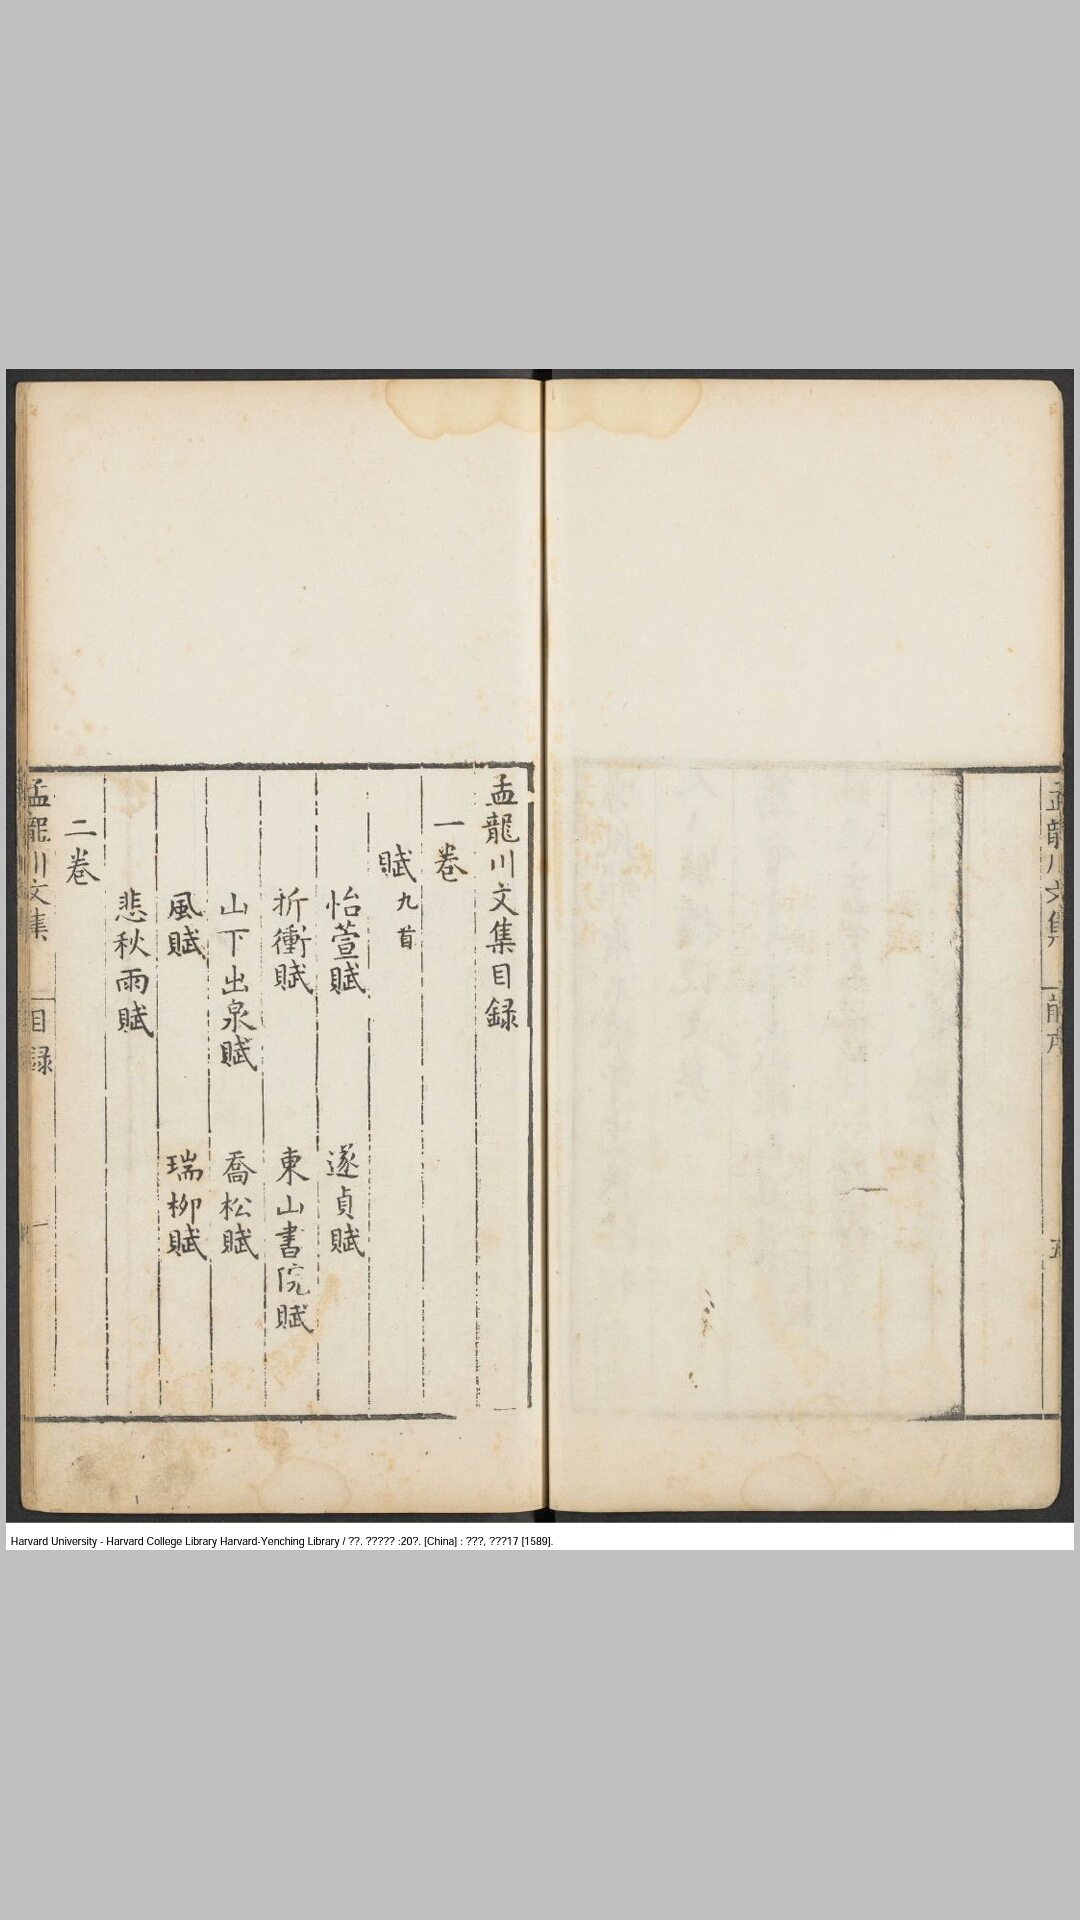 孟龍川文集
前序
五
孟龍川文集目録
一卷
賦九首
怡萱賦　遂貞賦
折衝賦　東山書院賦
山下出泉賦　喬松賦
風賦　瑞柳賦
悲秋雨賦
二卷
孟龍川文集
目録
一
Harvard University - Harvard College Library Harvard-Yenching Library / ??. ????? :20?. [China] : ???, ???17 [1589].